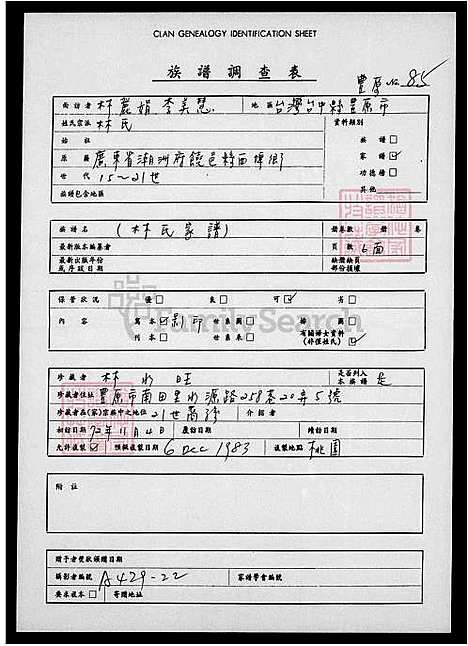 CLAN GENEALOGY IDENTIFICATION SHEET
族譜調查表
豐原 No. 85
面訪者 林麗娟 李美慧 地區 台灣台中縣豐原市
姓氏宗派 林氏 資料類別
始祖 族譜
原籍 廣東省潮洲府饒邑 鄉 家譜
世代 15~21世 功德榜
族譜包含地區 其他
族譜名 (林氏家譜) 冊卷數 冊 卷
最新版本編纂者 頁數 6面
最新出版年份 缺冊缺頁
或序跋日期 部份損壞
保管狀況 優 良 可 劣
內容 寫本 影印 世系圖 插圖
刊本 世系表 有關婦女資料
(非僅姓氏)
FamilySearch
珍藏者 林水旺 是否列入本族譜 是
珍藏者住址 豐原市南田里水源路258巷20弄5號
珍藏者在(家)宗族中之地位 21世裔孫 介紹者
初訪日期 72年11月4日 覆訪日期 續訪日期
允許複製 預擬複製日期 6 Dec 1983 複製地點 桃園
附註
贈予者獎狀頒贈日期
攝影者編號 A429-22 家譜學會編號
要求複本 寄贈地址